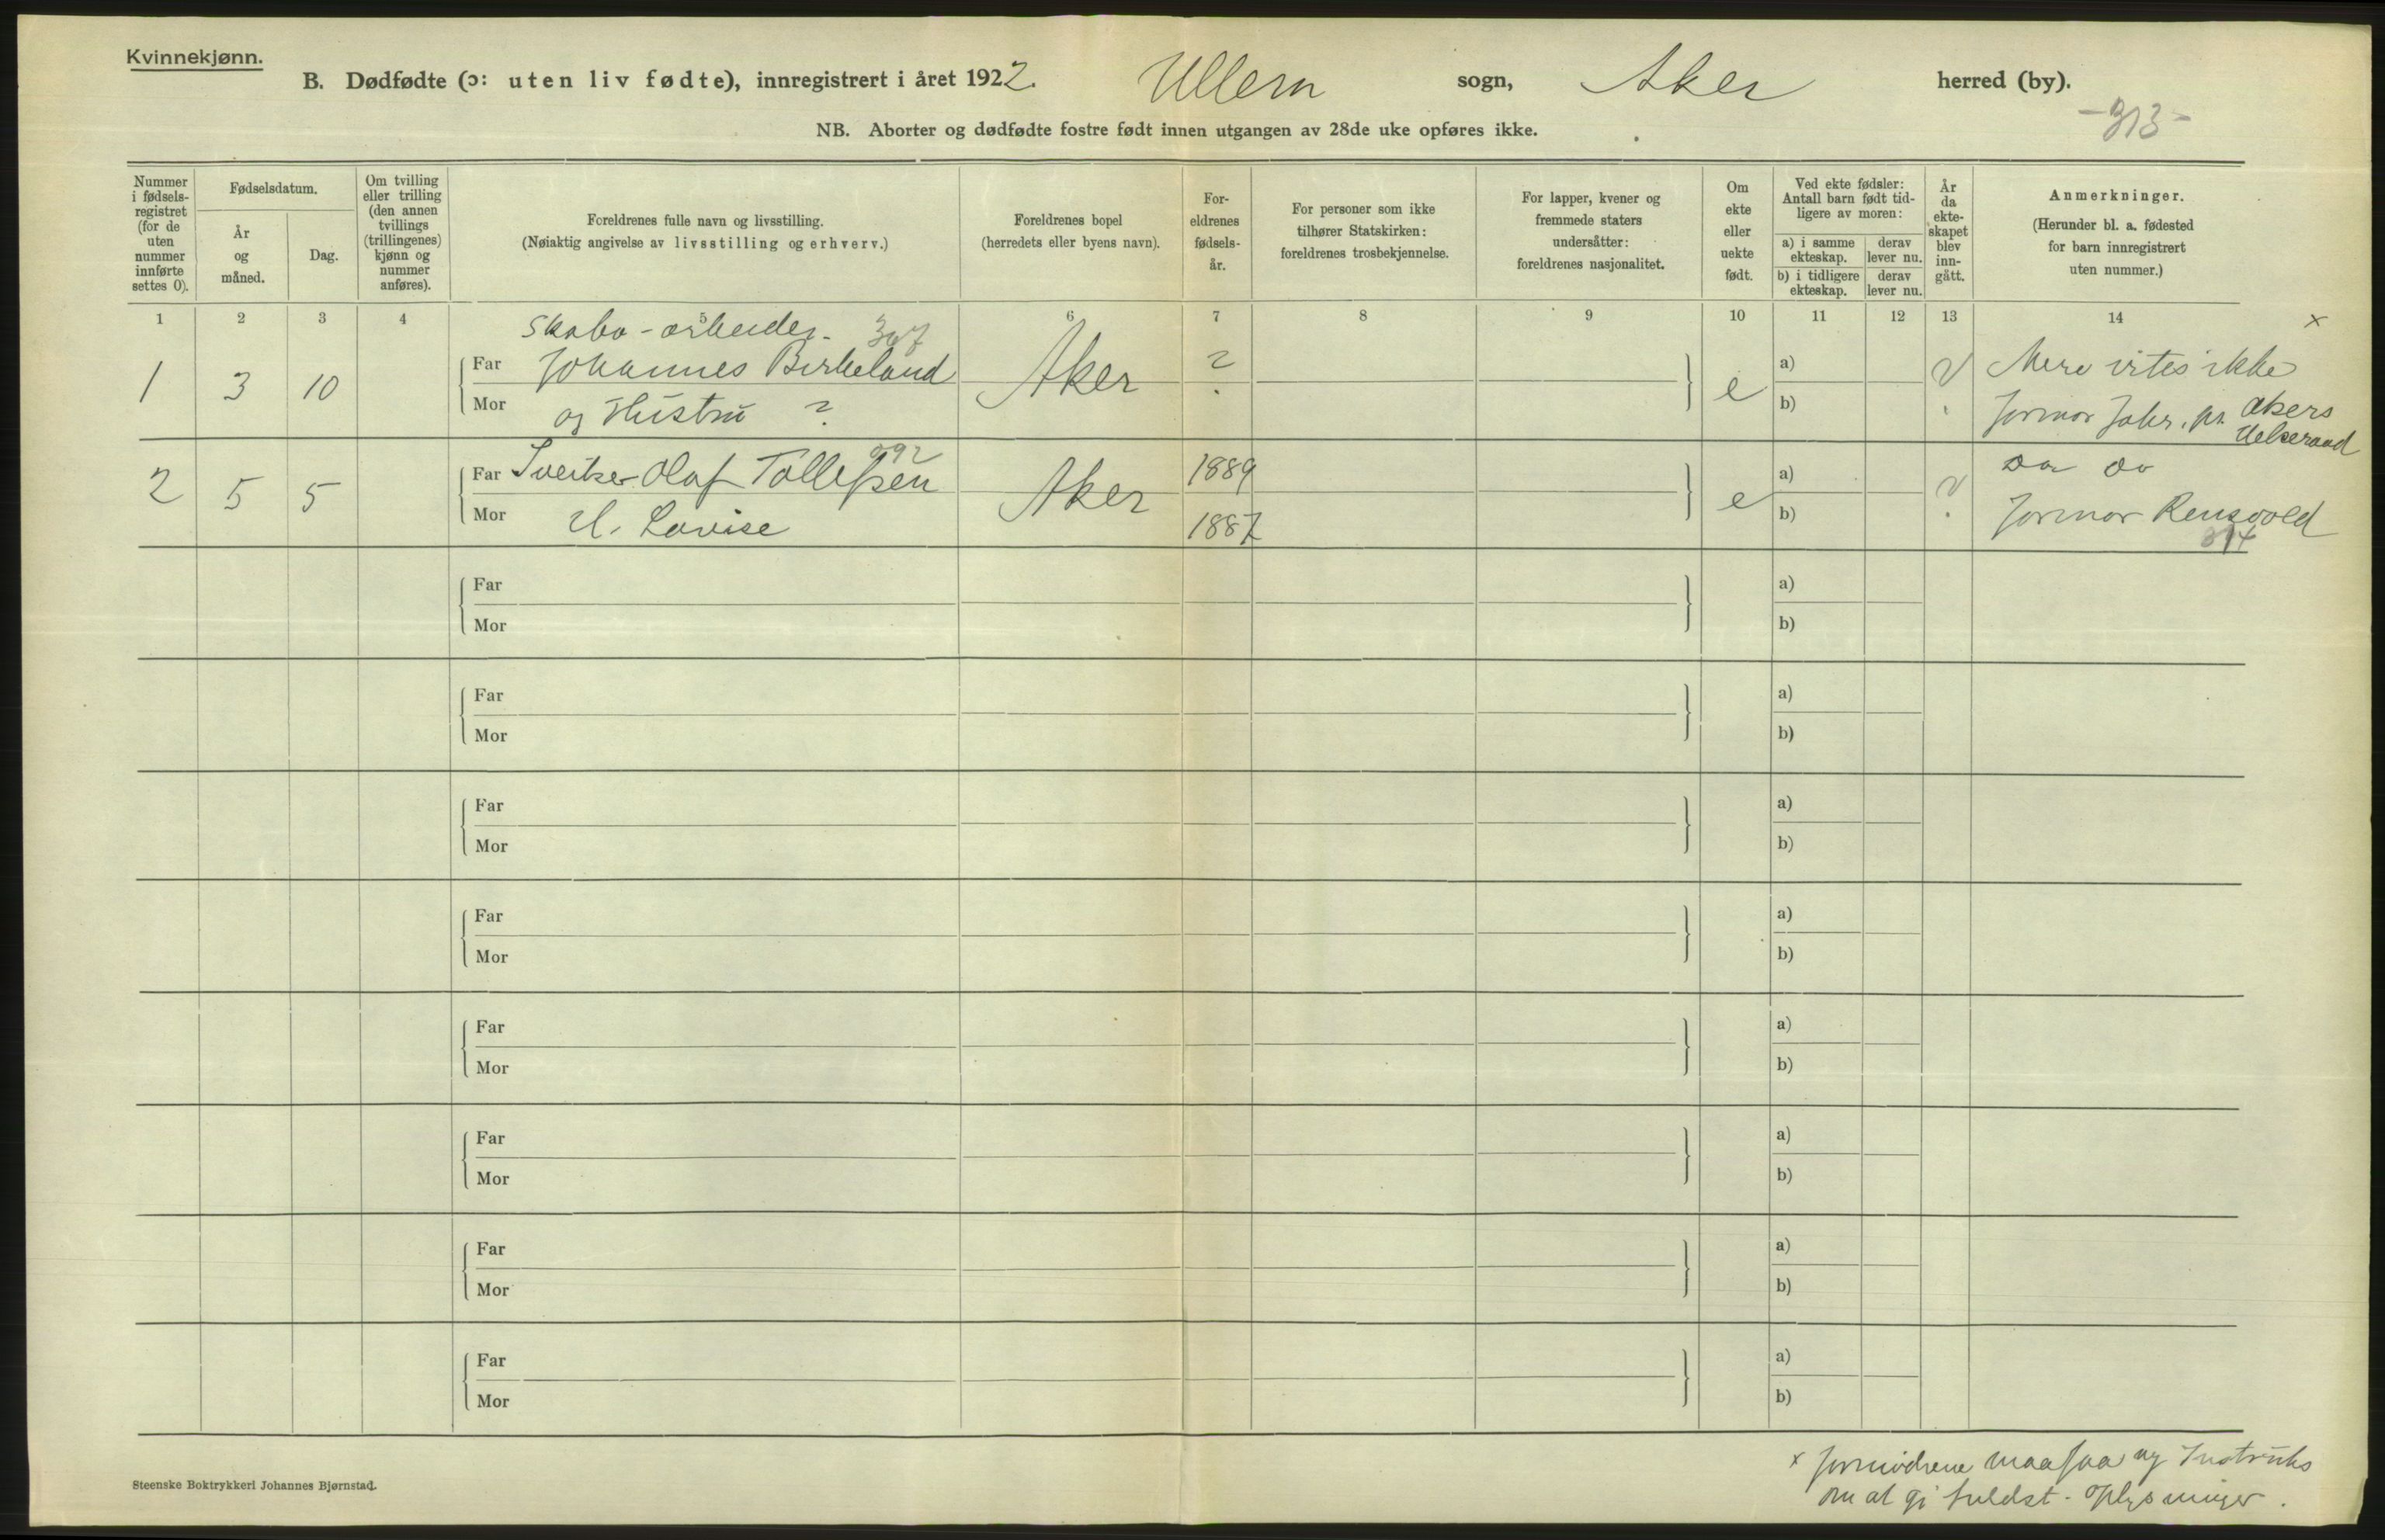 Kvinnekjønn.
B. Dødfødte (ɔ: uten liv fødte), innregistrert i året 1922. Ullern sogn, Aker herred (by).
-313-
NB. Aborter og dødfødte fostre født innen utgangen av 28de uke opføres ikke.
Nummer i fødselsregistret (for de uten nummer innførte settes 0).
Fødselsdatum.
År og måned.
Dag.
Om tvilling eller trilling (den annen tvillings (trillingenes) kjønn og nummer anføres).
Foreldrenes fulle navn og livsstilling.
(Nøiaktig angivelse av livsstilling og erhverv.)
Foreldrenes bopel
(herredets eller byens navn).
For-
eldrenes
fødsels-
år.
For personer som ikke
tilhører Statskirken:
foreldrenes trosbekjennelse.
For lapper, kvener og
fremmede staters
undersåtter:
foreldrenes nasjonalitet.
Om
ekte
eller
uekte
født.
Ved ekte fødsler:
Antall barn født tid-
ligere av moren:
a) i samme
ekteskap.
derav
lever nu.
b) i tidligere
ekteskap.
derav
lever nu.
År
da
ekte-
skapet
blev
inn-
gått.
Anmerkninger.
(Herunder bl. a. fødested
for barn innregistrert
uten nummer.)
1 2 3 4 5 6 7 8 9 10 11 12 13 14 x
Skabo-arbeider. 307
1 3 10 Far Johannes Birkeland Aker ? e a) ? Mere vites ikke
Mor og Hustru ? b) Jormor Jahr. pr. Akers
Helseraad
092
2 5 5 Far Sveitser Olaf Tollefsen Aker 1889 e a) ? do do
Mor H. Lovise 1887 b) Jormor Rensvold
314
Far a)
Mor b)
Far a)
Mor b)
Far a)
Mor b)
Far a)
Mor b)
Far a)
Mor b)
Far a)
Mor b)
Far a)
Mor b)
Far a)
Mor b)
x Jormødrene maa faa ny Instruks
om at gi fuldst. oplysninger.
Steenske Boktrykkeri Johannes Bjørnstad.